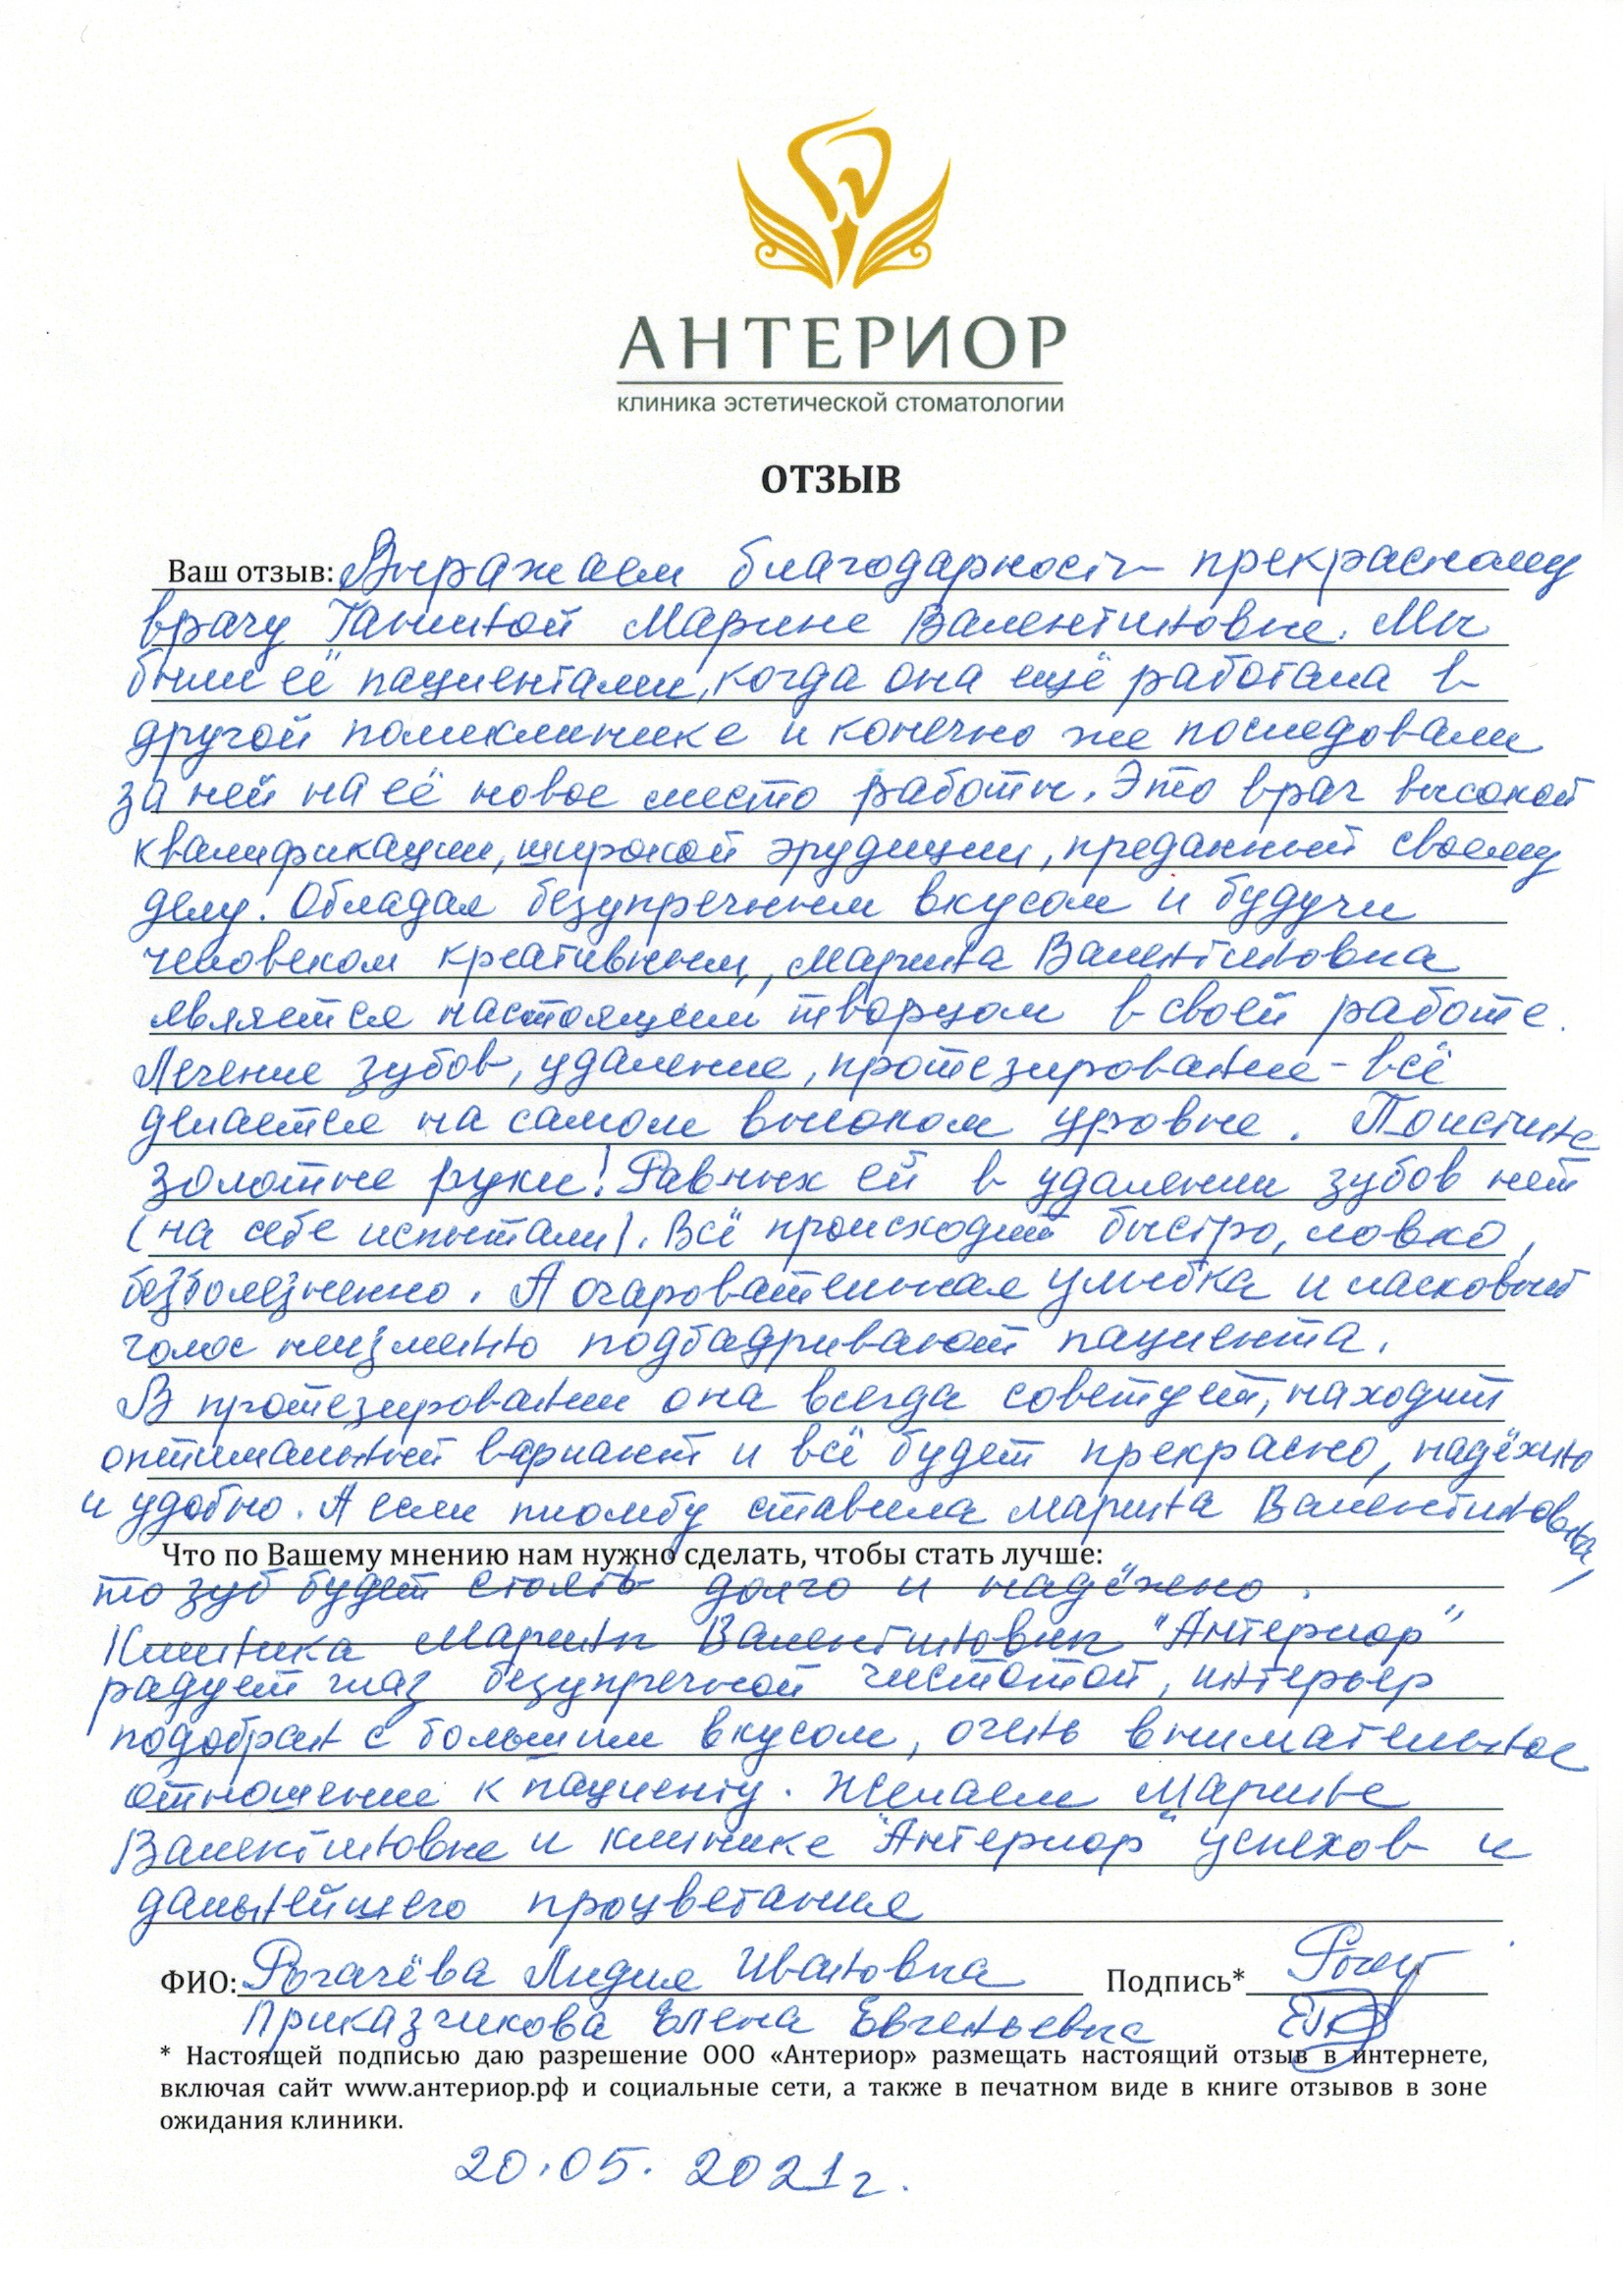 АНТЕРИОР
клиника эстетической стоматологии
ОТЗЫВ
Ваш отзыв: Выражаем благодарность прекрасному
врачу Марине Валентиновне. Мы
были её пациентами, когда она ещё работала в
другой поликлинике и конечно же последовали
за ней на её новое место работы. Это врач высокой
квалификации, широкой эрудиции, преданный своему
делу. Обладая безупречным вкусом и будучи
человеком креативным, Марина Валентиновна
является настоящим творцом в своей работе.
Лечение зубов, удаление, протезирование - всё
делается на самом высоком уровне. Поистине
золотые руки! Равных ей в удалении зубов нет
(на себе испытали). Всё происходит быстро, ловко,
безболезненно. А очаровательная улыбка и ласковый
голос неизменно подбадривают пациента.
В протезировании она всегда советует, находит
оптимальный вариант и всё будет прекрасно, надёжно
и удобно. А если пломбу ставила Марина Валентиновна,
Что по Вашему мнению нам нужно сделать, чтобы стать лучше:
то зуб будет стоять долго и надёжно.
Клиника Марины Валентиновны "Антериор"
радует глаз безупречной чистотой, интерьер
подобран с большим вкусом, очень внимательное
отношение к пациенту. Желаем Марине
Валентиновне и клинике "Антериор" успехов и
дальнейшего процветания
ФИО: Рогачёва Лидия Ивановна Подпись*
Приказчикова Елена Евгеньевна
* Настоящей подписью даю разрешение ООО «Антериор» размещать настоящий отзыв в интернете,
включая сайт www.антериор.рф и социальные сети, а также в печатном виде в книге отзывов в зоне
ожидания клиники.
20.05.2021г.